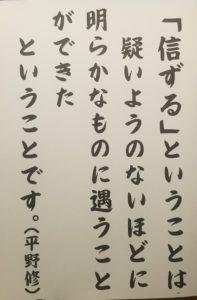 「信ずる」ということは
疑いようのないほどに
明らかなものに遇うこと
ができた
ということです。(平野修)